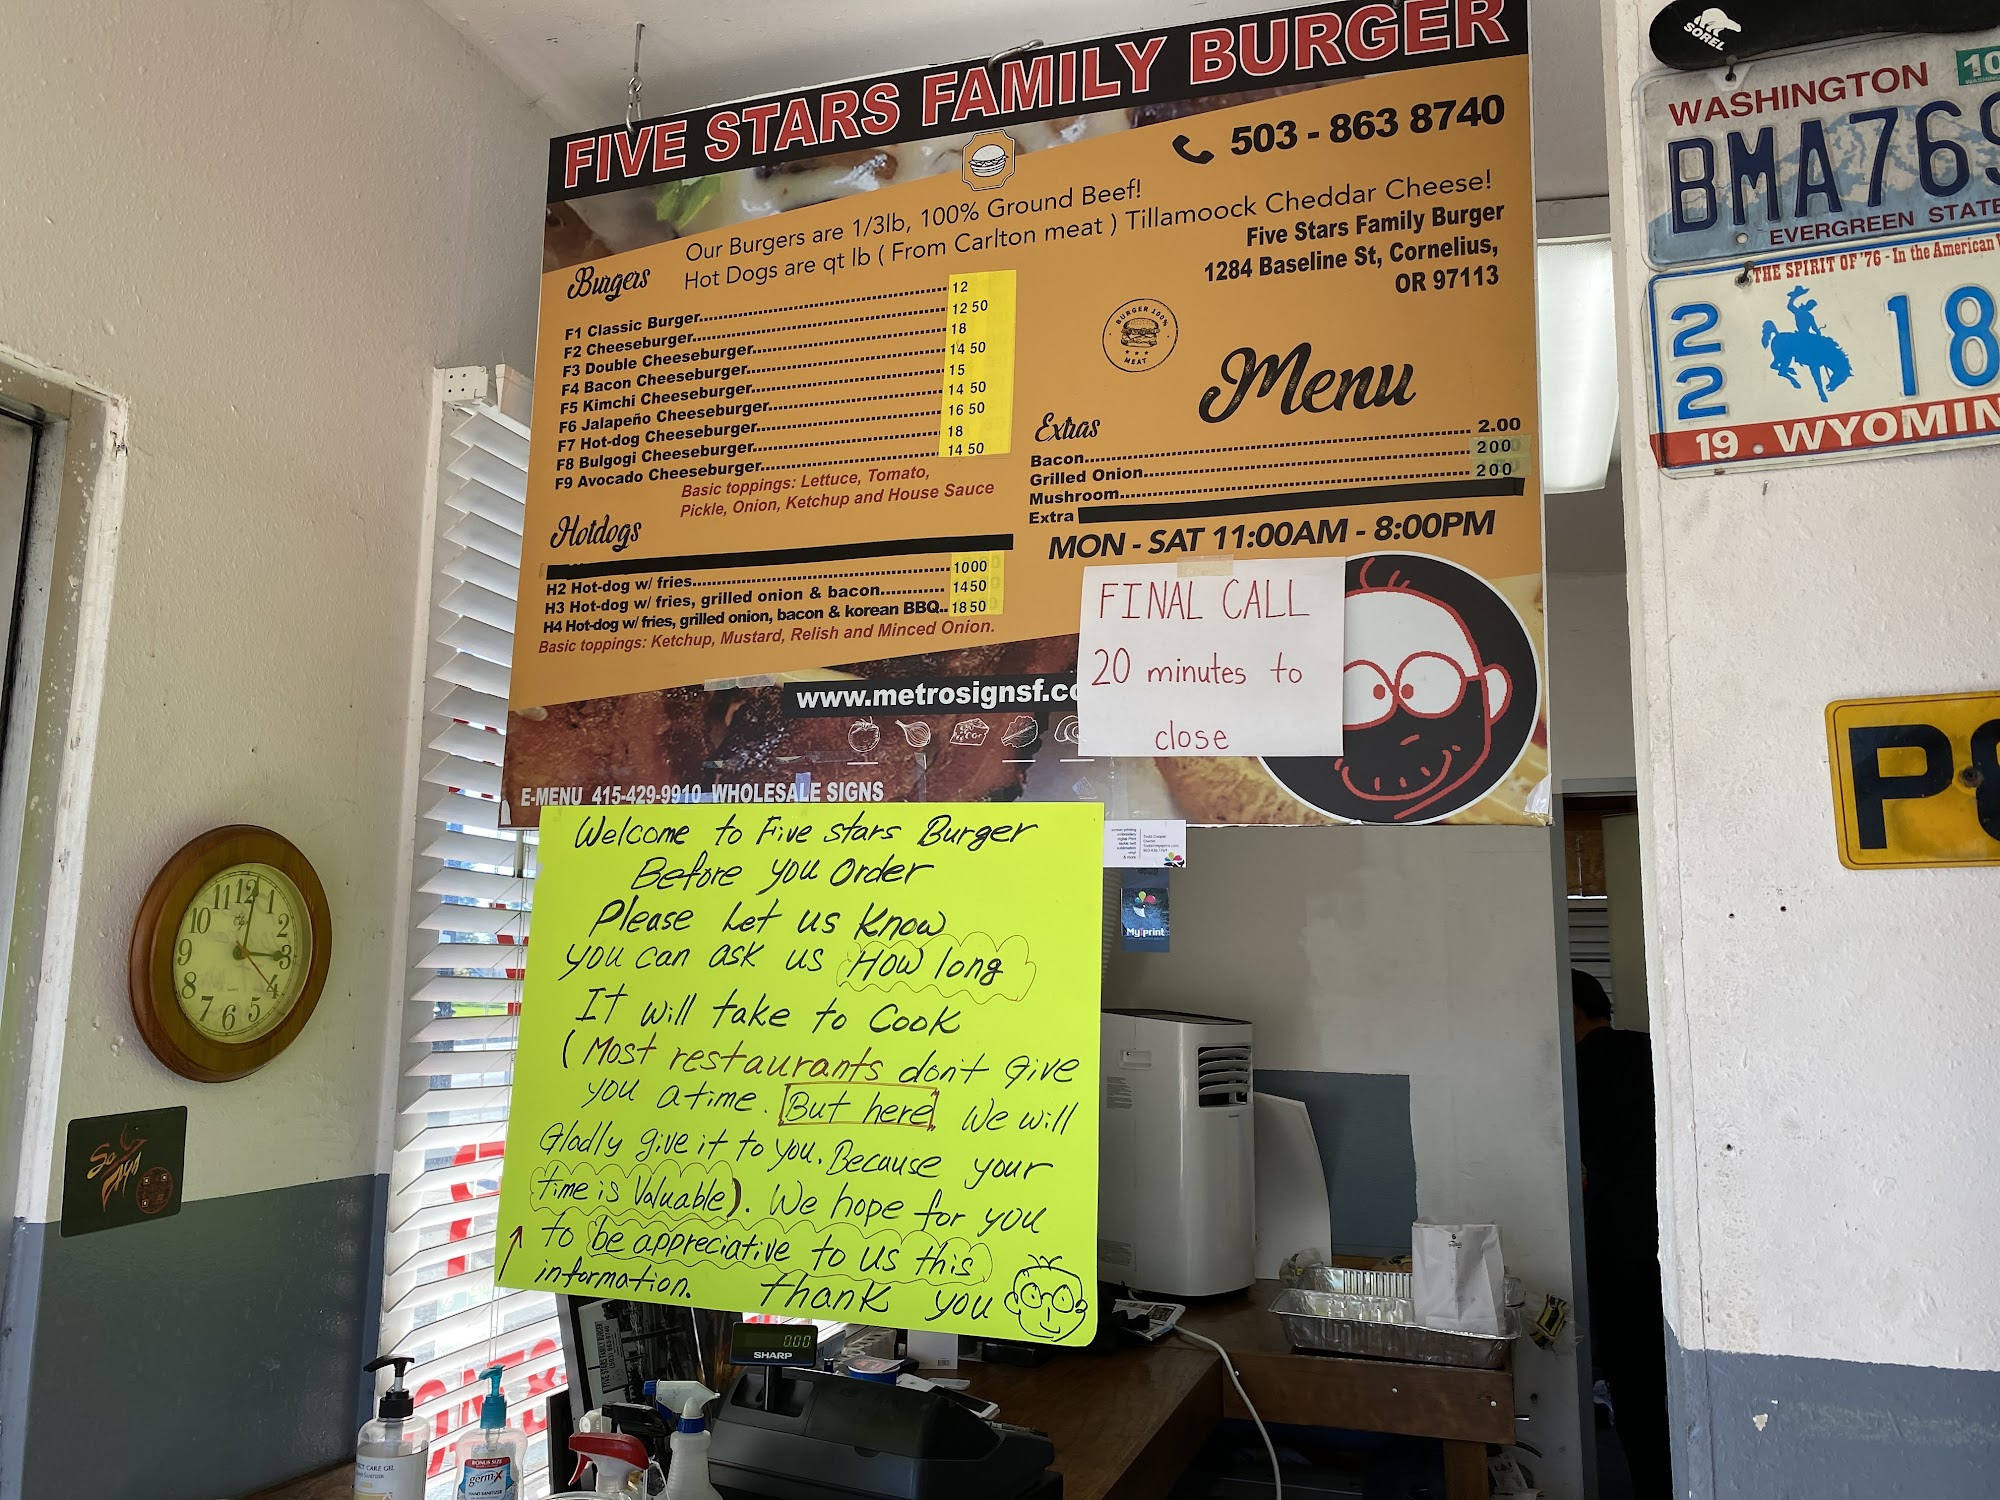 FIVE STARS FAMILY BURGER
503 - 863 8740
Our Burgers are 1/3lb, 100% Ground Beef!
Hot Dogs are qt lb ( From Carlton meat ) Tillamoock Cheddar Cheese!
Five Stars Family Burger
1284 Baseline St, Cornelius,
OR 97113
BURGER 100%
MEAT
Menu
Burgers
F1 Classic Burger 12
F2 Cheeseburger 12 50
F3 Double Cheeseburger 18
F4 Bacon Cheeseburger 14 50
F5 Kimchi Cheeseburger 15
F6 Jalapeño Cheeseburger 14 50
F7 Hot-dog Cheeseburger 16 50
F8 Bulgogi Cheeseburger 18
F9 Avocado Cheeseburger 14 50
Basic toppings: Lettuce, Tomato,
Pickle, Onion, Ketchup and House Sauce
Extras
Bacon 2.00
Grilled Onion 200
Mushroom 200
Extra
MON - SAT 11:00AM - 8:00PM
Hotdogs
H2 Hot-dog w/ fries 1000
H3 Hot-dog w/ fries, grilled onion & bacon 1450
H4 Hot-dog w/ fries, grilled onion, bacon & korean BBQ.. 1850
Basic toppings: Ketchup, Mustard, Relish and Minced Onion.
FINAL CALL
20 minutes to
close
www.metrosignsf.co
E-MENU 415-429-9910 WHOLESALE SIGNS
Welcome to Five stars Burger
Before you Order
Please Let us Know
you can ask us How long
It will take to Cook
(Most restaurants don't give
you a time. But here We will
Gladly give it to you. Because your
time is Valuable). We hope for you
to be appreciative to us this
information. thank you
My print
SOREL
WASHINGTON
10
BMA769
EVERGREEN STATE
THE SPIRIT OF '76 - In the American
22 18
19 WYOMIN
P8
11 12 1
10 2
9 3
8 4
7 6 5
0.00
SHARP
FIVE STARS FAMILY BURGER
BONUS SIZE
germ-X
HAND SANITIZER
CARE GEL
6